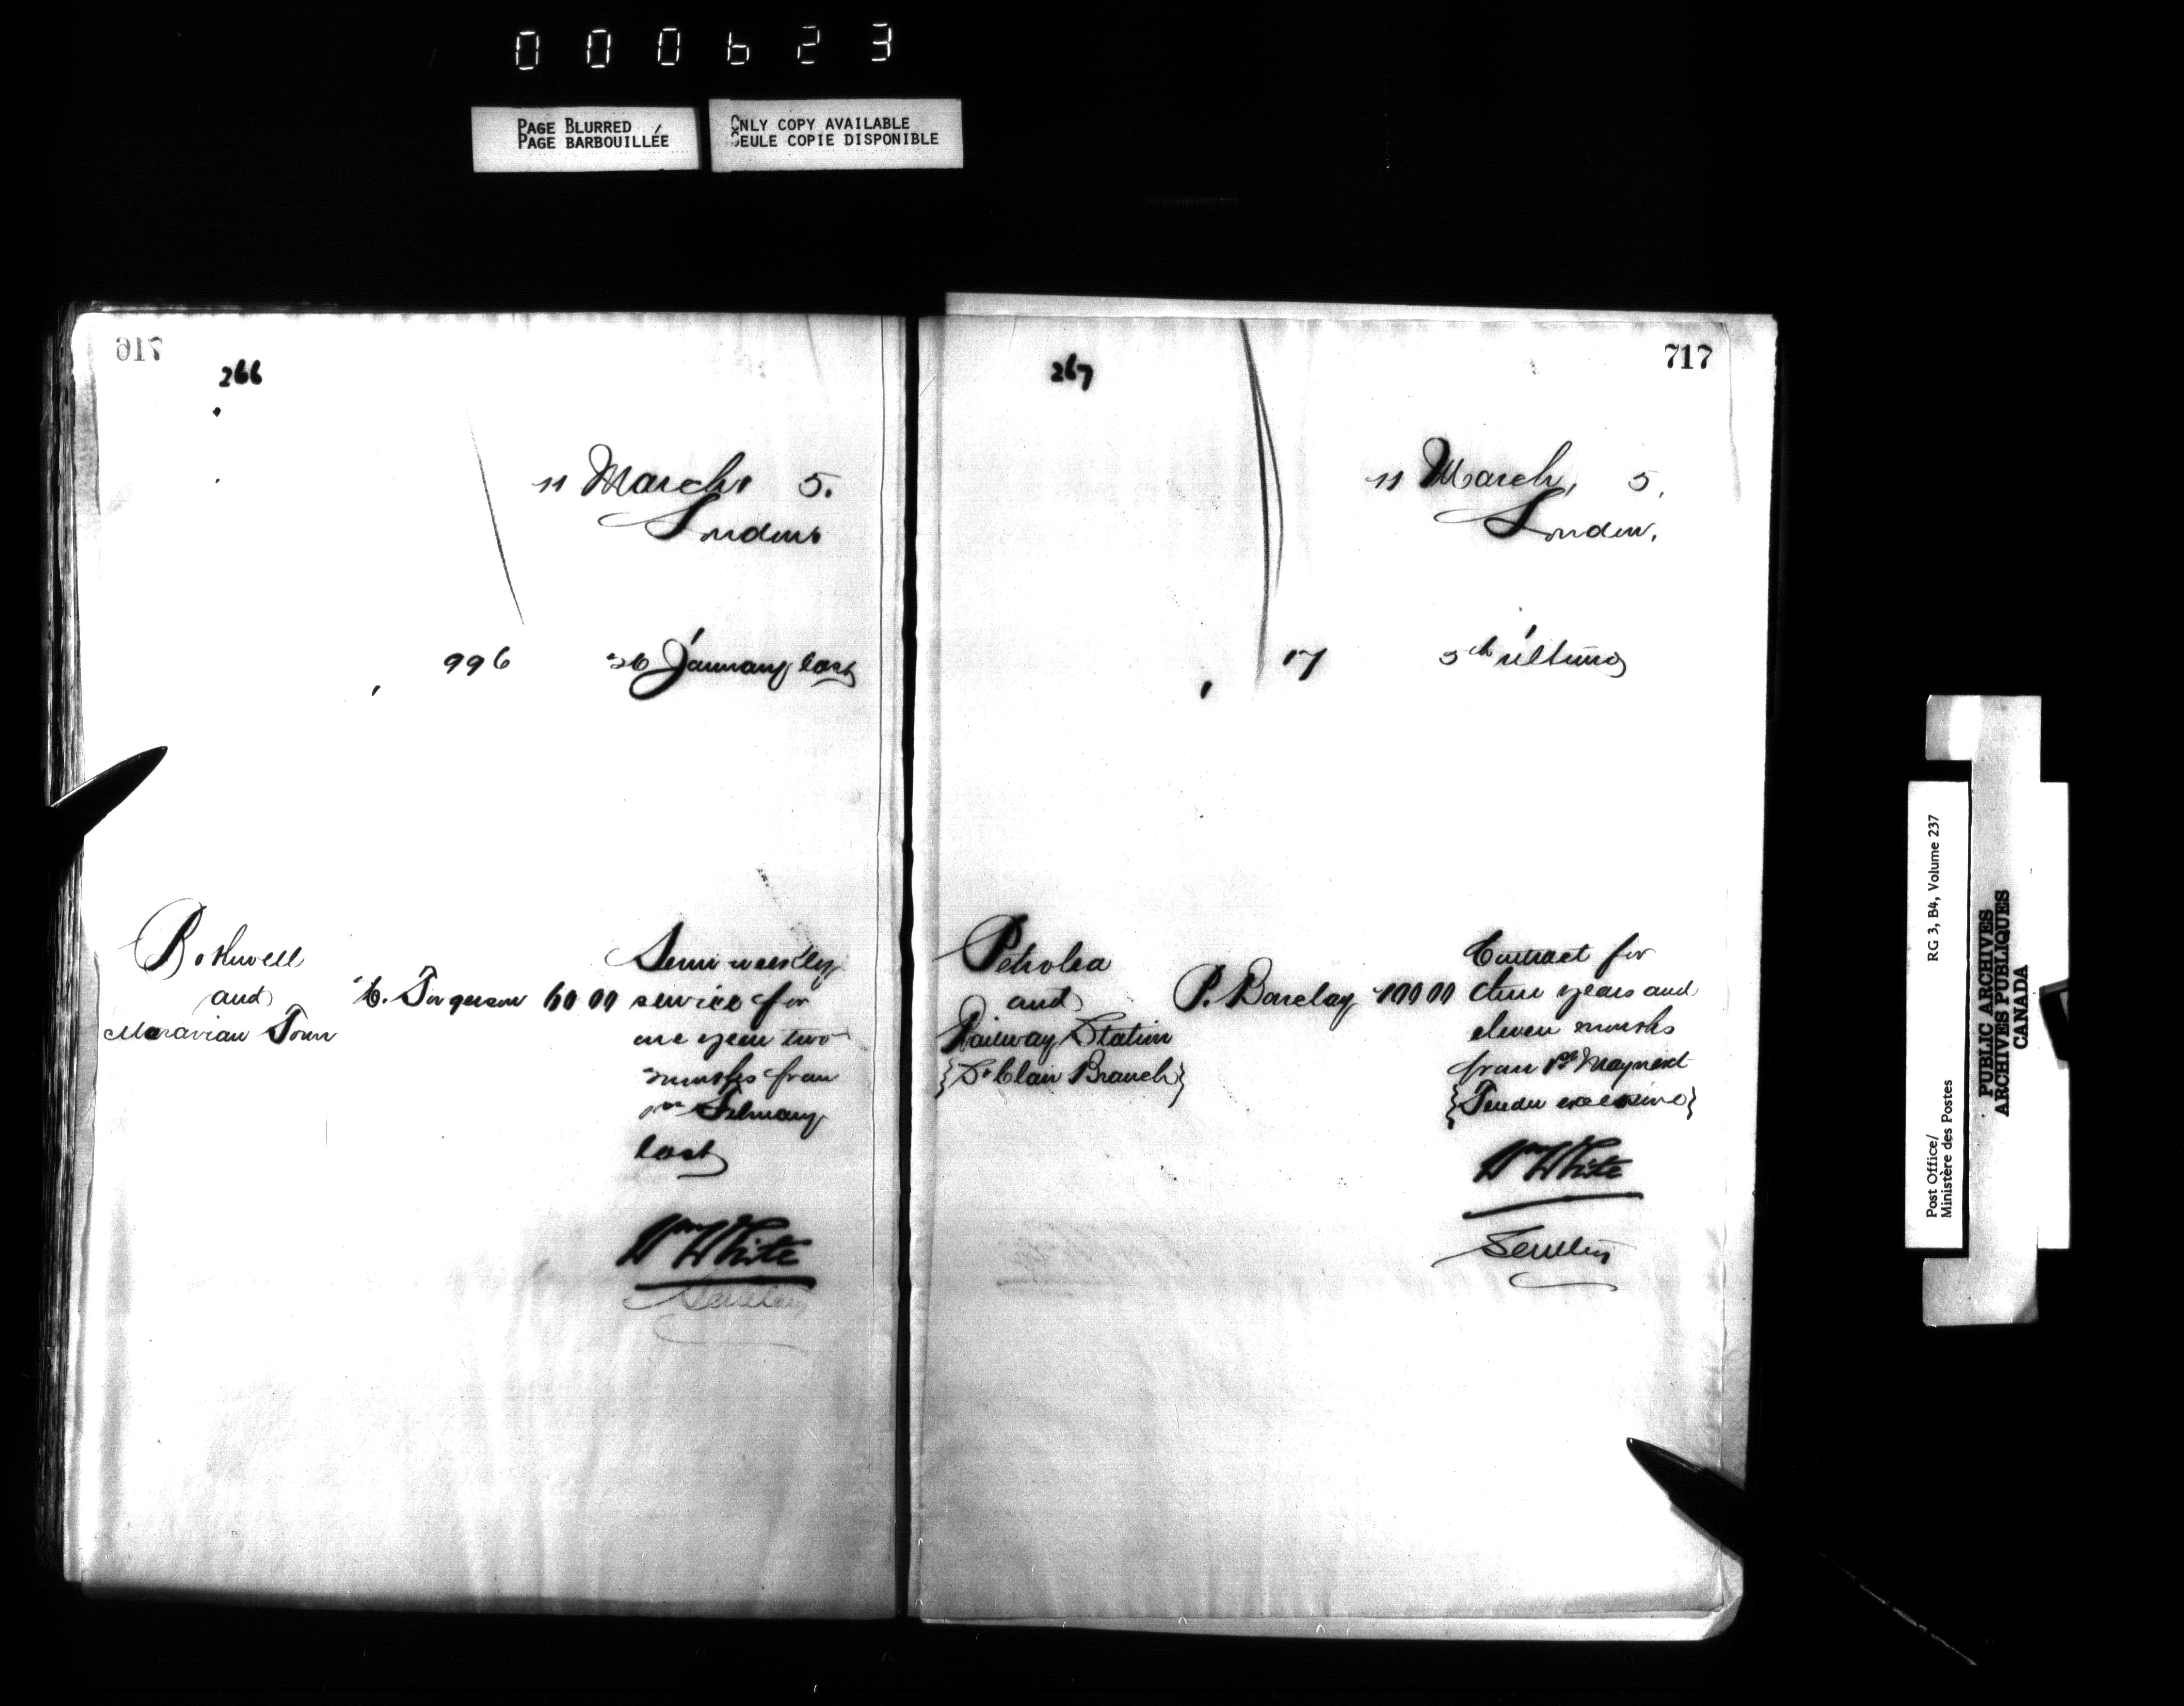 000623
PAGE BLURRED
PAGE BARBOUILLÉE
ONLY COPY AVAILABLE
SEULE COPIE DISPONIBLE
716
266
11 March, 5.
London
996 26 January last
Bothwell
and
Moravian Town
C. Fergerson 60 00
Semi weekly
service for
one year two
months from
1st February
last
Wm White
Secretary
717
267
11 March, 5.
London,
17 5th ultimo
Petrolea
and
Railway Station
{St Clair Branch}
P. Barclay 100 00
Contract for
three years and
eleven months
from 1st May next
{Tender excessive}
Wm White
Secretary
Post Office/
Ministère des Postes
RG 3, B4, Volume 237
PUBLIC ARCHIVES
ARCHIVES PUBLIQUES
CANADA